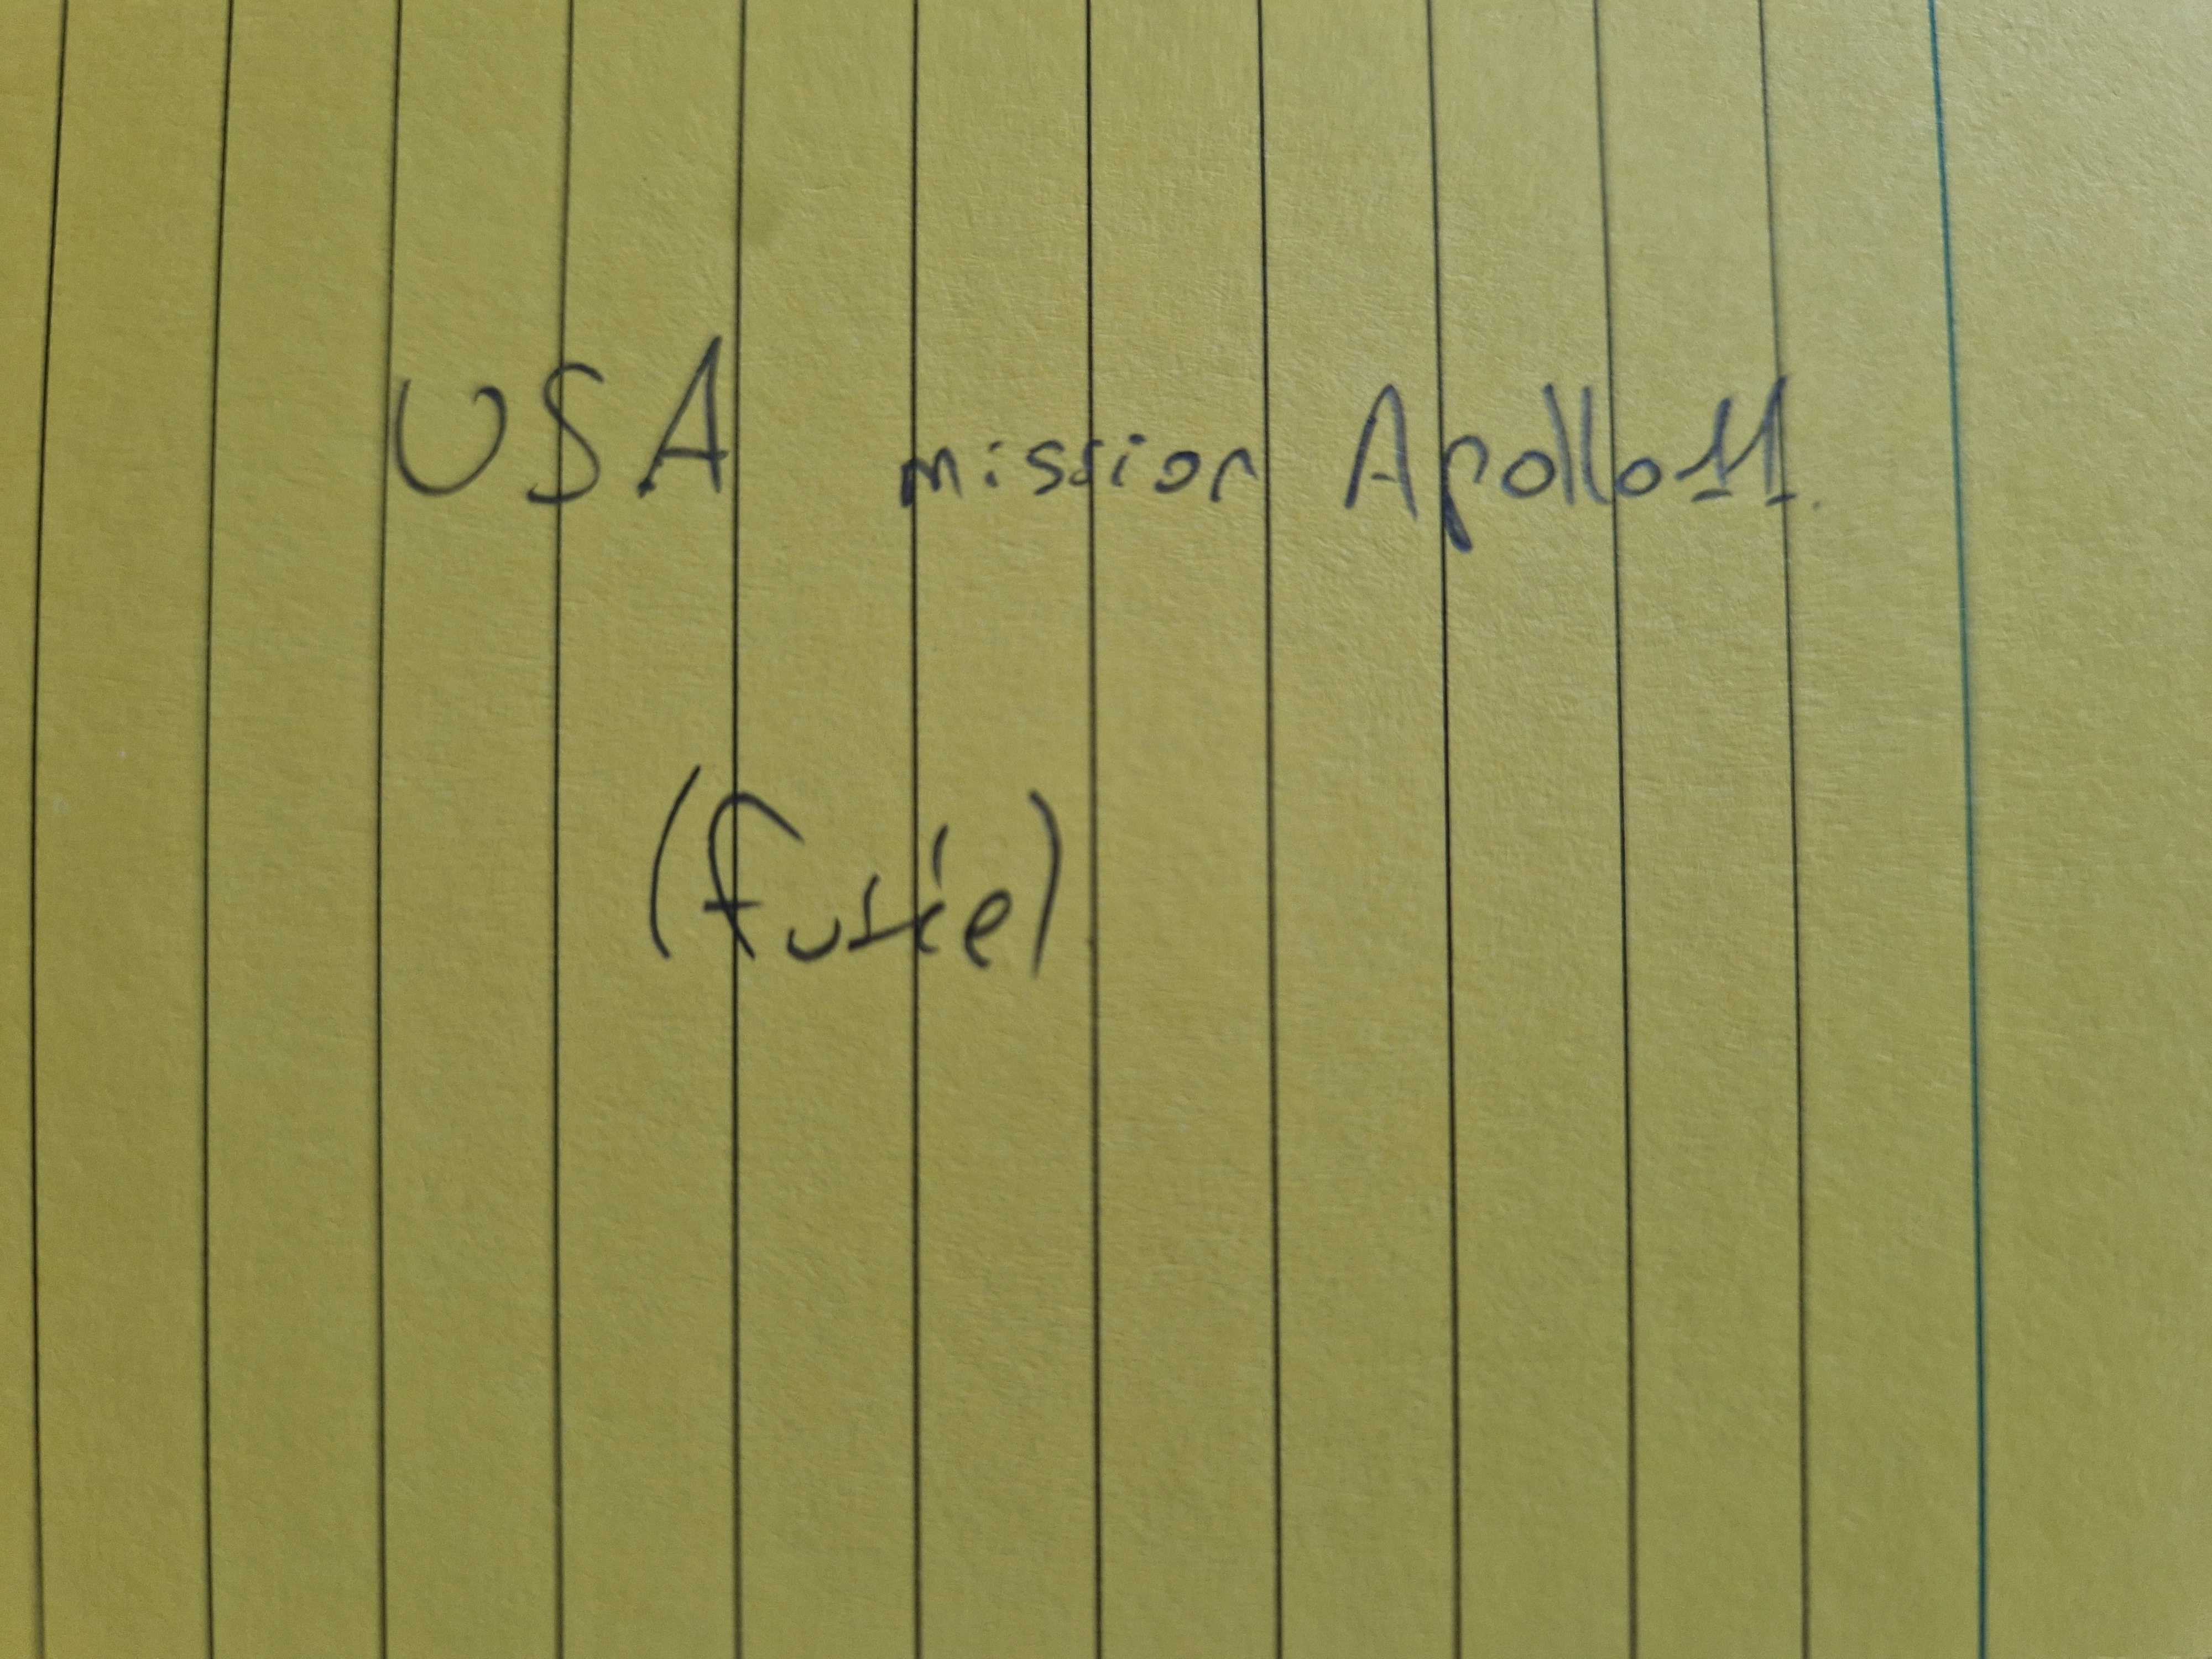 USA mission Apollo 11.
(fusée)